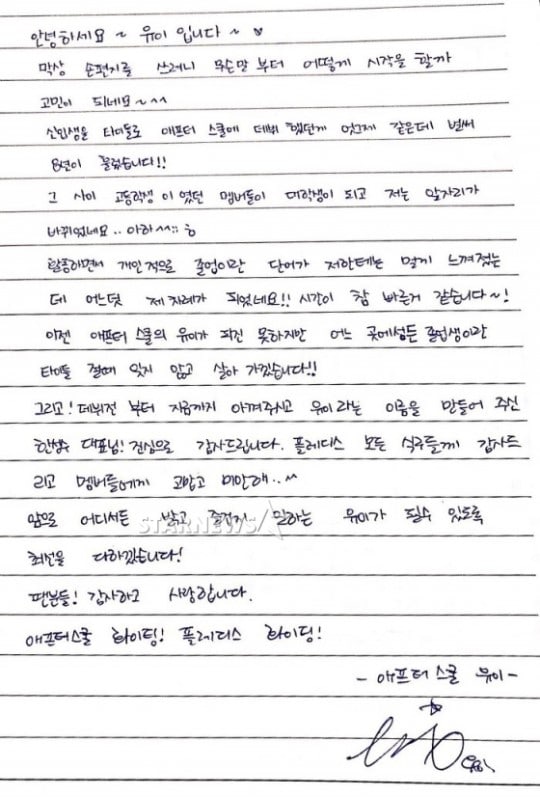 안녕하세요~ 유이 입니다~ ♥
막상 손편지를 쓰려니 무슨말 부터 어떻게 시작을 할까
고민이 되네요~^^
신입생을 타이틀로 애프터 스쿨에 데뷔 했던게 엊그제 같은데 벌써
8년이 흘렀습니다!!
그 사이 고등학생 이였던 멤버들이 대학생이 되고 저는 앞자리가
바뀌었네요.. 아하^^;; ㅎ
활동하면서 개인적으로 졸업이란 단어가 저한테는 멀게 느껴졌는
데 어느덧 제 차례가 되었네요!! 시간이 참 빠른거 같습니다~!
이젠 애프터 스쿨의 유이가 되진 못하지만 어느 곳에서든 졸업생이란
타이틀 절때 잊지 않고 살아 가겠습니다!!
그리고! 데뷔전 부터 지금까지 아껴주시고 유이라는 이름을 만들어 주신
한성수 대표님! 진심으로 감사드립니다. 플레디스 모든 식구들께 감사드
리고 멤버들에게 고맙고 미안해..^^
앞으로 어디서든 밝고 즐겁게 일하는 유이가 될수 있도록
최선을 다하겠습니다!
팬분들! 감사하고 사랑합니다.
애프터스쿨 화이팅! 플레디스 화이팅!
- 애프터 스쿨 유이 -
STARNEWS